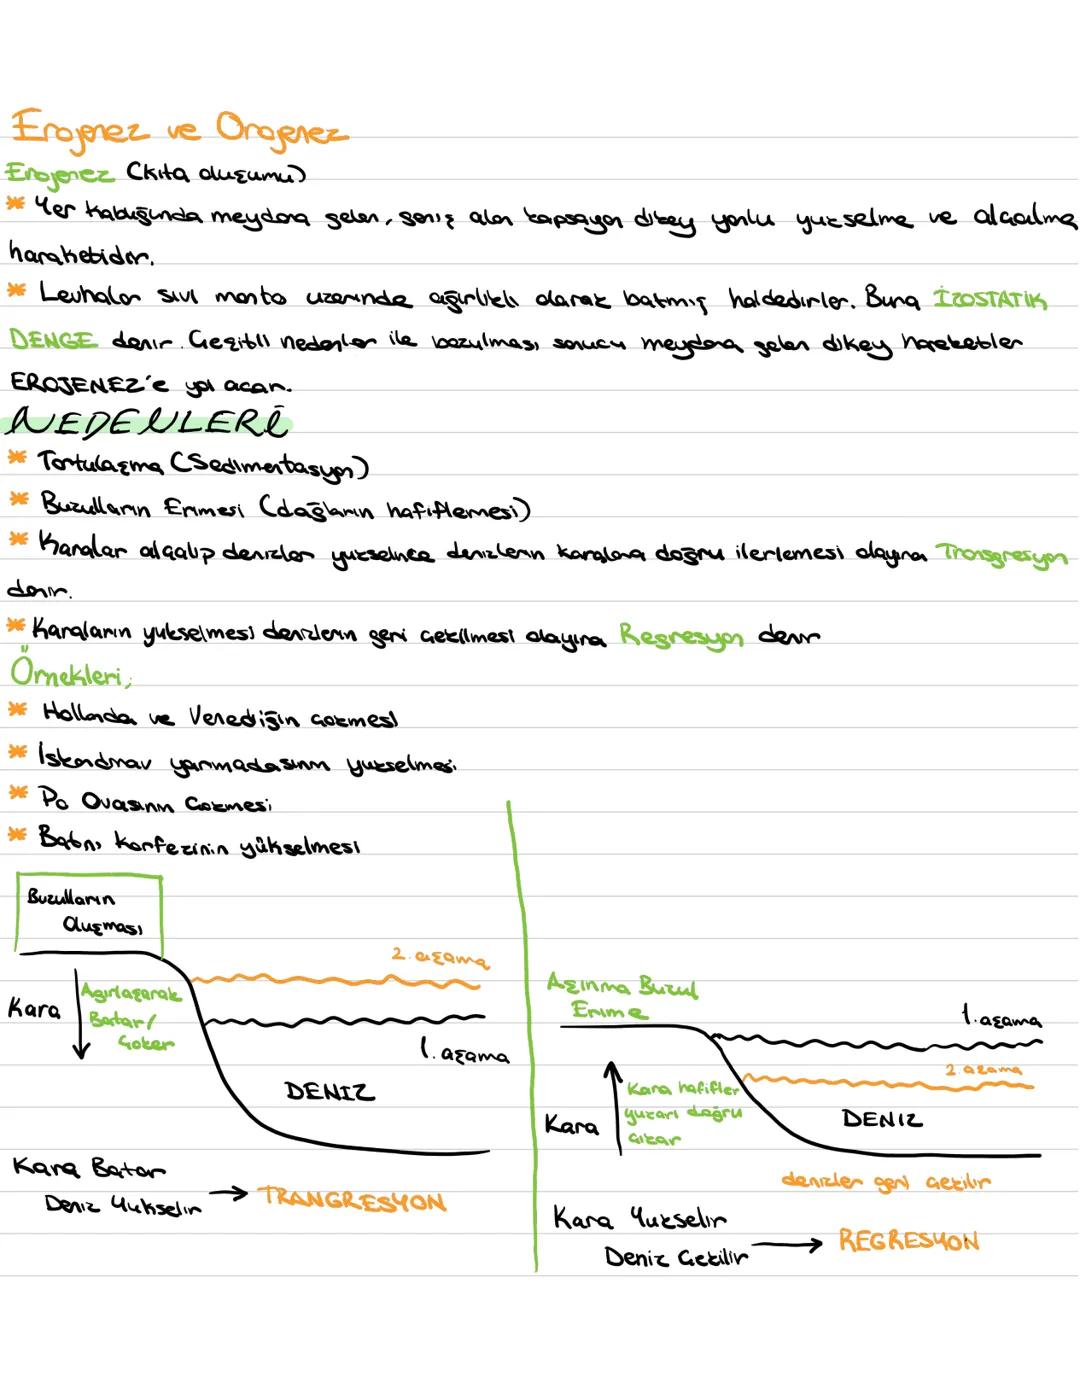 Erojenez ve Orojenez
Erojenez (kıta oluşumu)
* Yer kabuğunda meydana gelen, geniş alan kapsayan dikey yönlü yükselme ve alçalma
haraketidir.
* Levhalar sıvı manto uzerinde ağırlıklı olarak batmış haldedirler. Buna İZOSTATİK
DENGE denir. Çeşitli nedenler ile bozulması sonucu meydana gelen dikey hareketler
EROJENEZ'e yol açar.
NEDENLERİ
* Tortulaşma (Sedimentasyon)
* Buzulların Erimesi (dağların hafiflemesi)
* Karalar alçalıp denizler yükselince denizlerin karalara doğru ilerlemesi olayına Transgresyon
denir.
* Karaların yukselmesi denizlerin geri çekilmesi olayına Regresyon denir
Örnekleri;
* Hollanda ve Venediğin çökmesi
* İskandinav yarımadasının yükselmesi
* Po Ovasının Çökmesi
* Botni körfezinin yükselmesi
Buzulların
Oluşması
2. aşama
Kara
Ağırlaşarak
Batar/
Çöker
1. aşama
DENIZ
Kara Batar
Deniz Yükselir → TRANGRESYON
Aşınma Buzul
Erime
1. aşama
2. aşama
Kara
Kara hafifler
yukarı doğru
çıkar
DENIZ
denizler geri çekilir
Kara Yükselir
Deniz Çekilir → REGRESYON